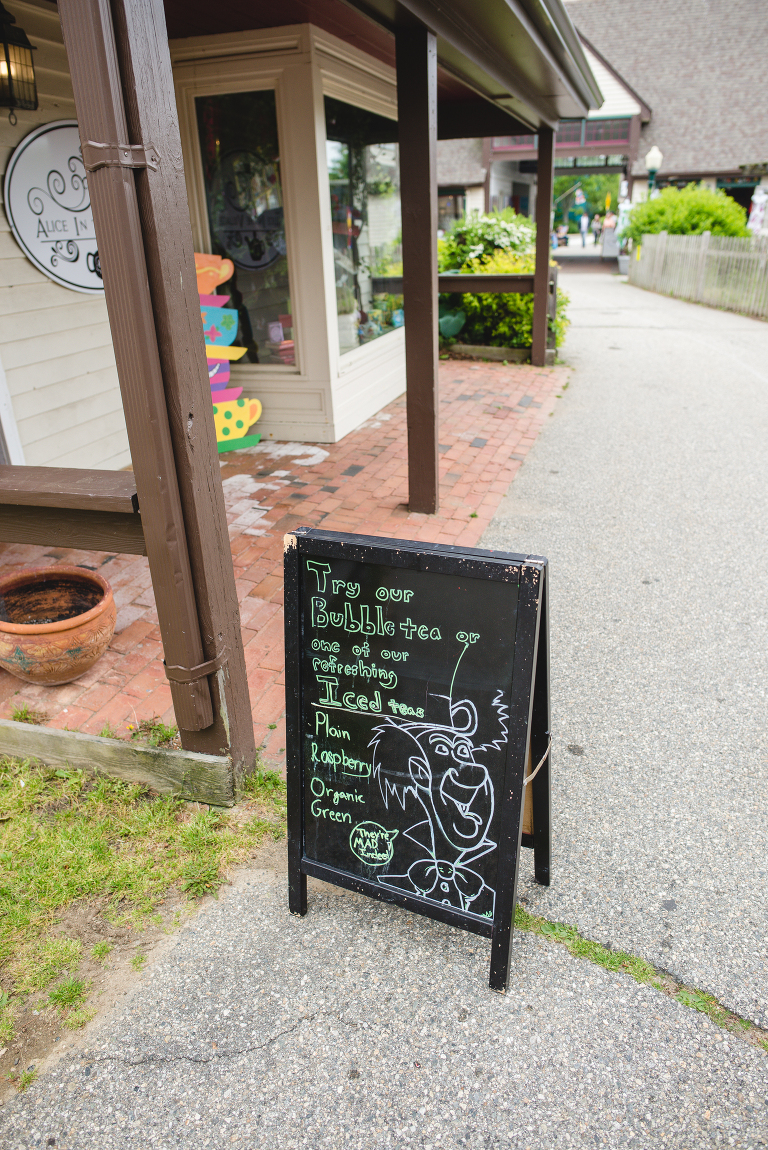 ALICE IN
Try our
Bubble tea or
one of our
refreshing
Iced teas
Plain
Raspberry
Organic
Green
They're
MAD
Indeed